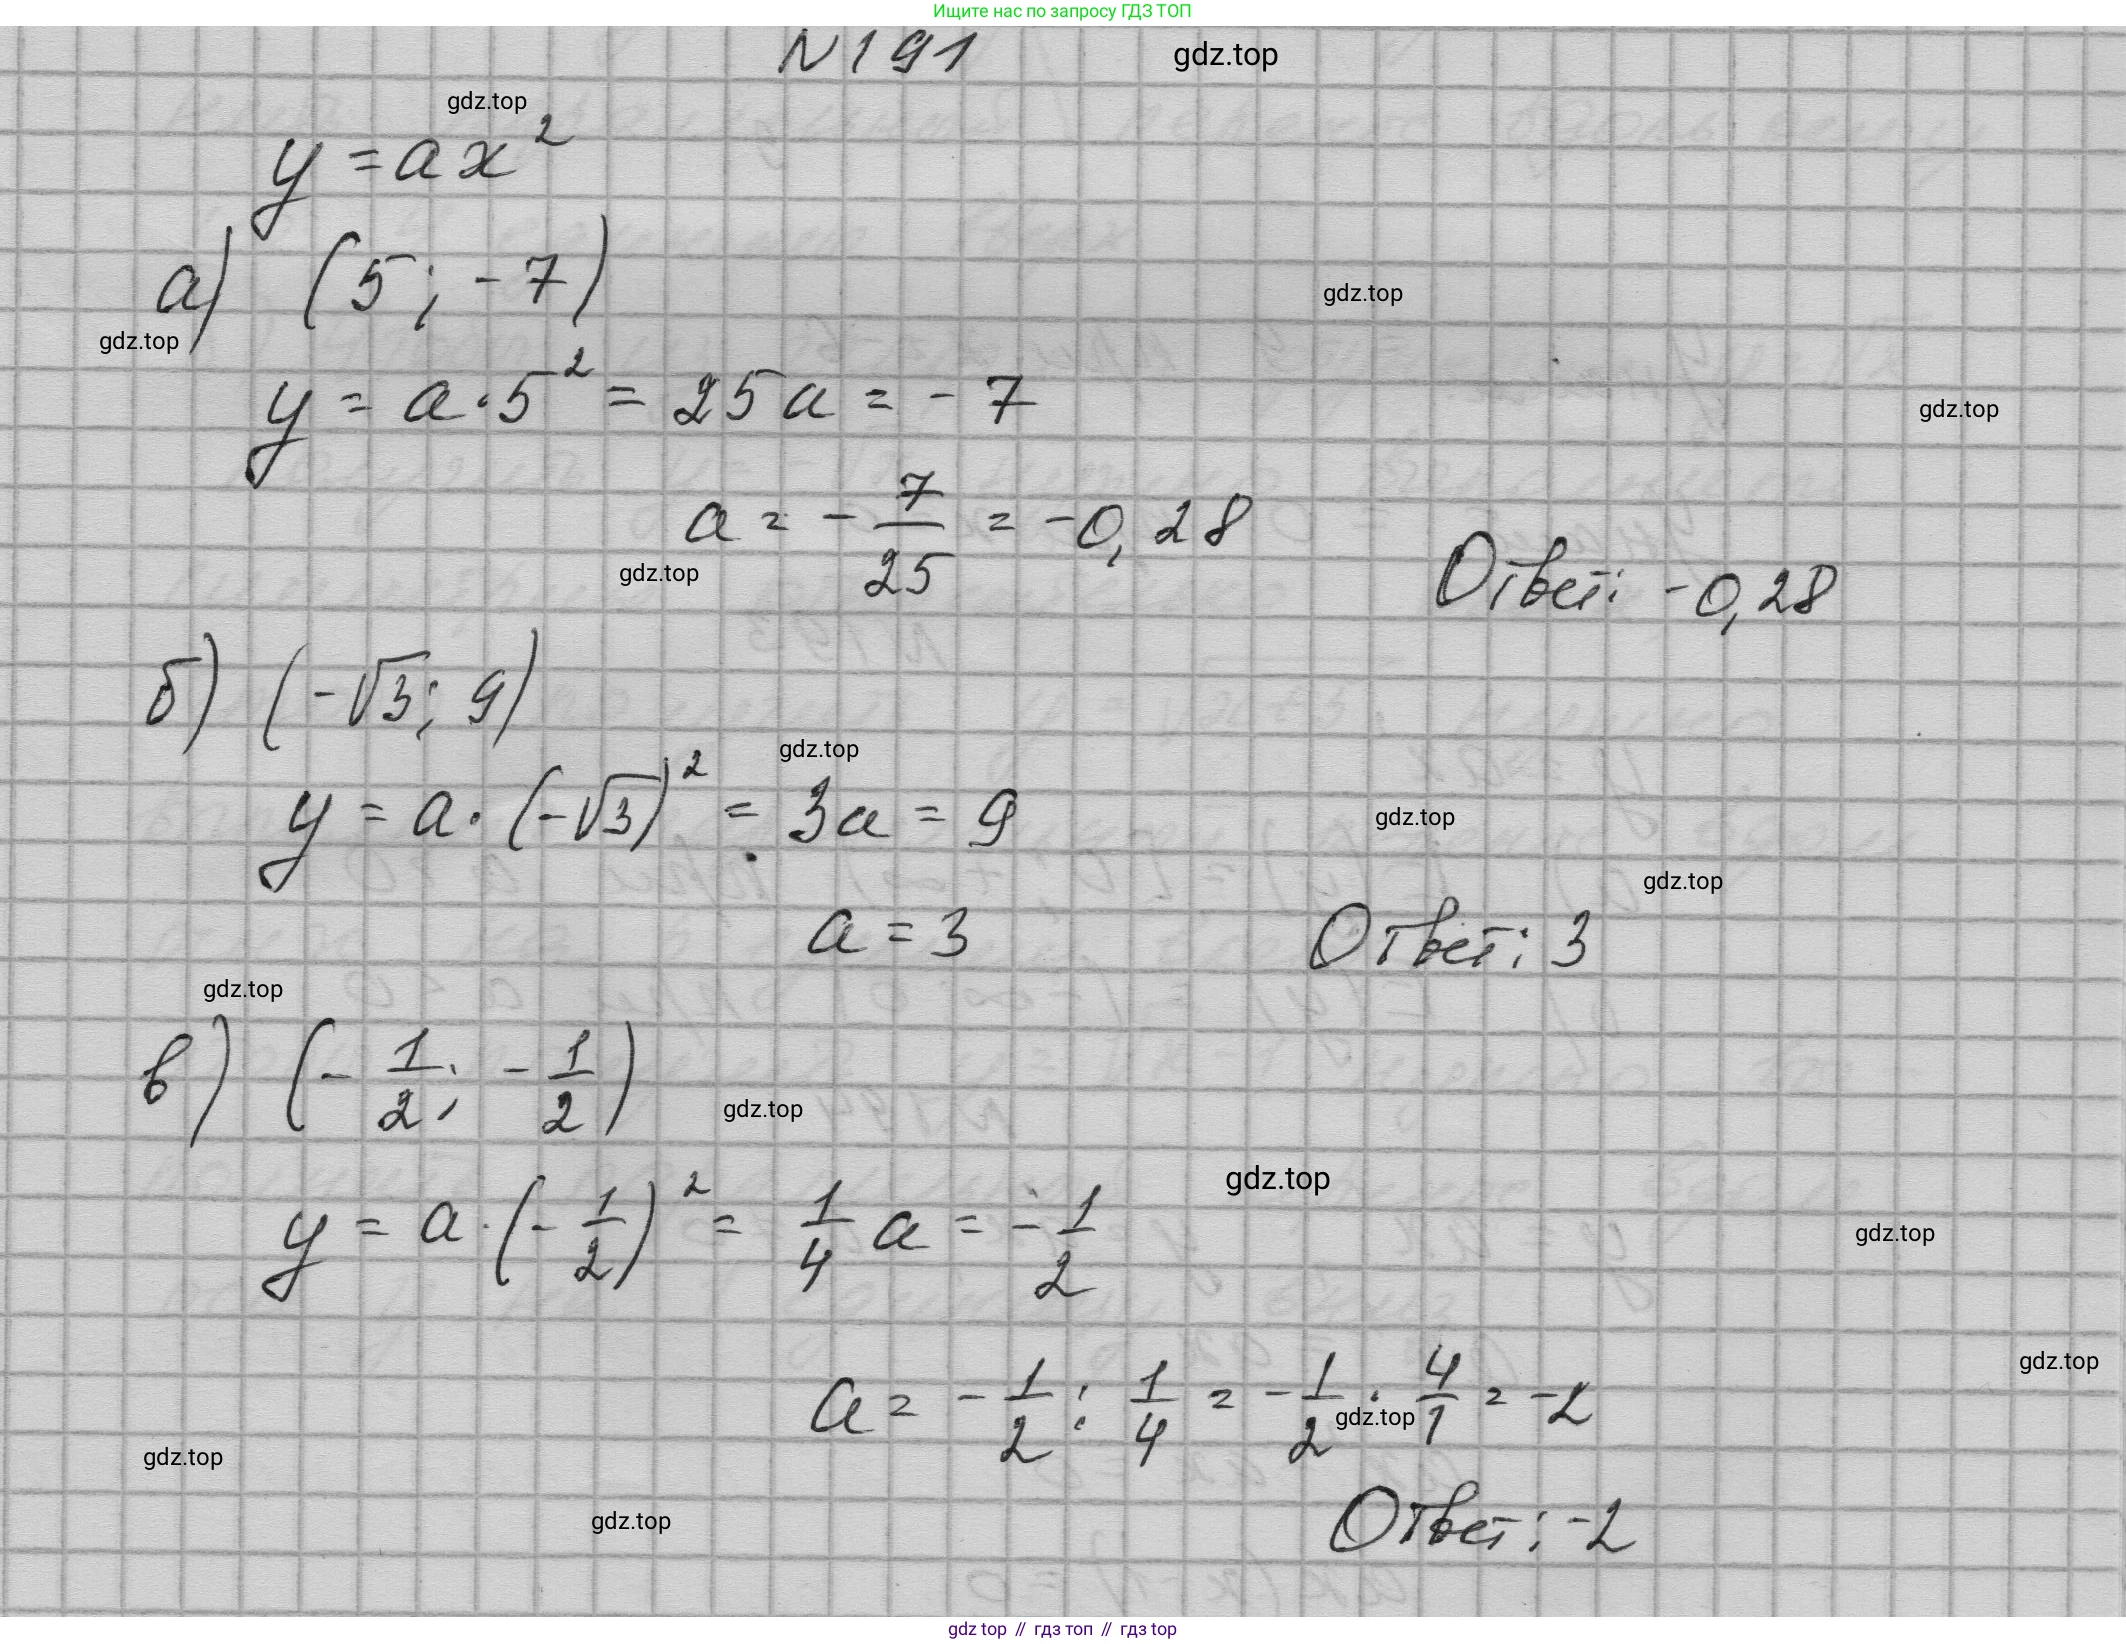 Ищите нас по запросу ГДЗ ТОП
N 191
gdz.top
gdz.top
y = ax²
а) (5; -7)
gdz.top
gdz.top
y = a·5² = 25a = -7
gdz.top
a = -7/25 = -0,28
gdz.top
Ответ: -0,28
б) (-√3; 9)
gdz.top
y = a·(-√3)² = 3a = 9
gdz.top
gdz.top
a = 3
Ответ: 3
gdz.top
в) (-1/2; -1/2)
gdz.top
gdz.top
y = a·(-1/2)² = 1/4 a = -1/2
gdz.top
gdz.top
a = -1/2 : 1/4 = -1/2 · 4/1 = -2
gdz.top
gdz.top
gdz.top
Ответ: -2
gdz top // гдз топ // гдз top